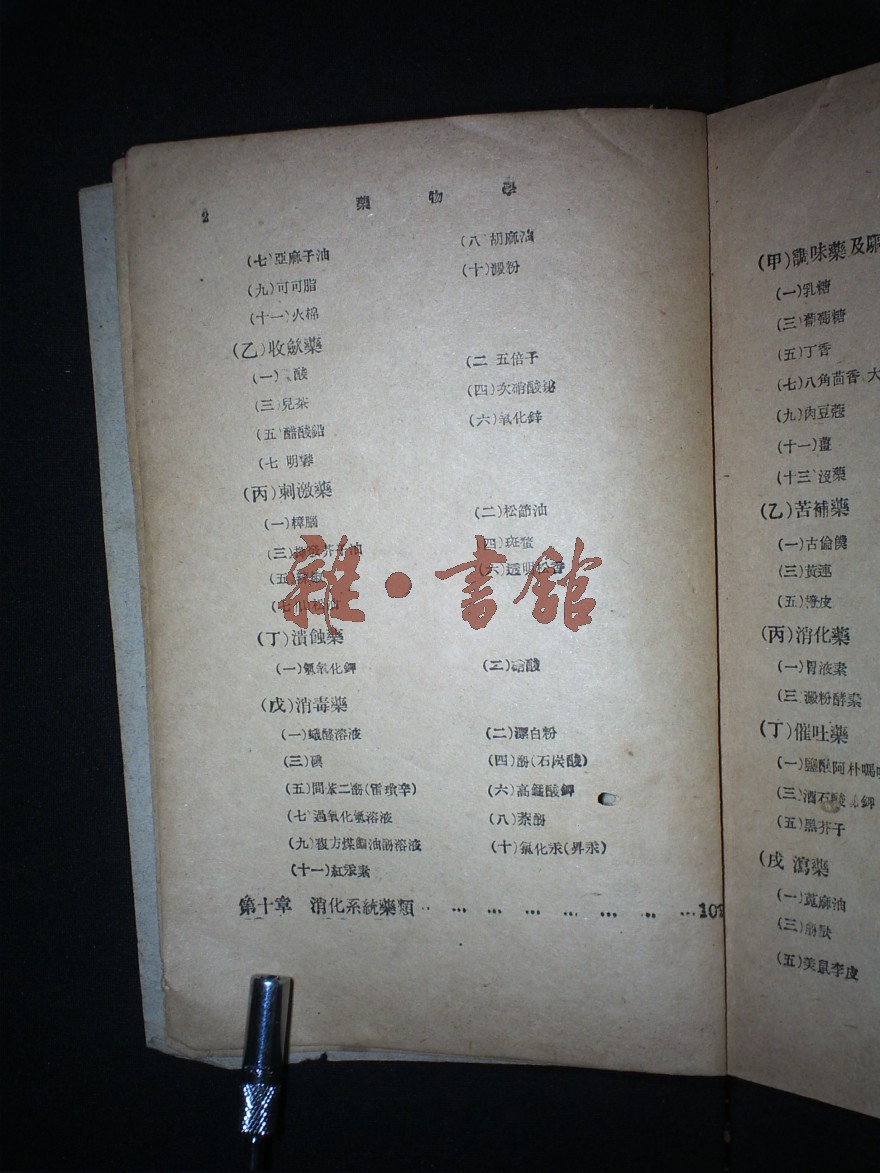 2 藥物學
(七)亞麻子油 (八)胡麻油
(九)可可脂 (十)澱粉
(十一)火棉
(乙)收斂藥
(一) 酸 (二)五倍子
(三)兒茶 (四)次硝酸鉍
(五)醋酸鉛 (六)氧化鋅
(七)明礬
(丙)刺激藥
(一)樟腦 (二)松節油
(三) 芥子油 (四)斑蝥
(五) (六)透明松香
(七) 松油
(丁)潰蝕藥
(一)氫氧化鉀 (二)硝酸
(戊)消毒藥
(一)蟻醛溶液 (二)漂白粉
(三)碘 (四)酚(石炭酸)
(五)間苯二酚(雷瑣辛) (六)高錳酸鉀
(七)過氧化氫溶液 (八)萘酚
(九)複方煤餾油酚溶液 (十)氯化汞(昇汞)
(十一)紅汞素
第十章 消化系統藥類 … … … … … … … … 10
雜·書館
(甲)調味藥及
(一)乳糖
(三)葡萄糖
(五)丁香
(七)八角茴香、大
(九)肉豆蔻
(十一)薑
(十三)沒藥
(乙)苦補藥
(一)古倫僕
(三)黃連
(五)橙皮
(丙)消化藥
(一)胃液素
(三)澱粉酵素
(丁)催吐藥
(一)鹽酸阿朴嗎
(三)酒石酸 鉀
(五)黑芥子
(戊)瀉藥
(一)蓖麻油
(三)
(五)美鼠李皮